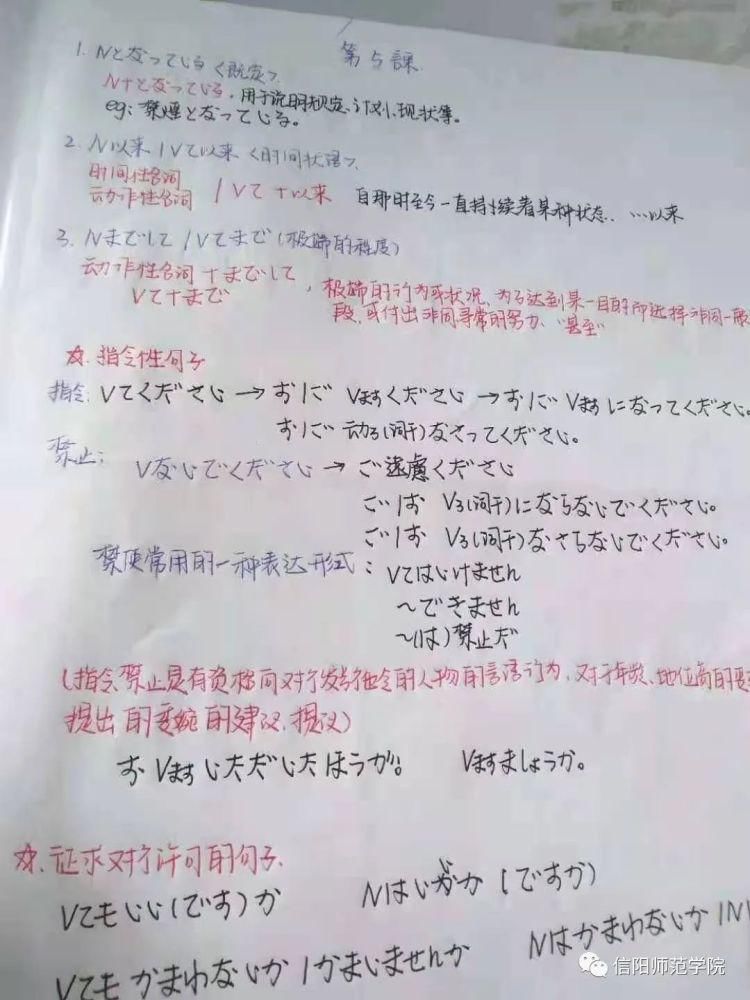 第5課
1. Nとなっている〈既定〉.
N+となっている, 用于说明规定、计划、现状等。
eg: 禁煙となっている。
2. N以来 / Vて以来〈时间状语〉.
时间性名词
动作性名词 / Vて + 以来 自那时至今一直持续着某种状态、…以来
3. Nまでして / Vてまで(极端的程度)
动作性名词+までして
Vて+まで ,极端的行为或状况、为了达到某一目的而选择非同一般
段、或付出非同寻常的努力、"甚至"
☆. 指令性句子
指令: Vてください → お/ご Vますください → お/ご Vます になってください。
お/ご 动3(词干)なさってください。
禁止: Vないでください → ご遠慮ください
ご/お V3(词干)にならないでください。
ご/お V3(词干)なさらないでください。
常用的一种表达形式: Vてはいけません
〜できません
〜(は)禁止だ
(指令、禁止是有资格向对方发号施令的人物的言语行为, 对于年龄、地位高的要
提出的委婉的建议、提议)
お Vます いただいたほうが。 Vますましょうか。
☆. 征求对方许可的句子.
Vてもいい(です)か Nはいいか (ですか)
Vてもかまわないか / かまいませんか Nはかまわないか / N
信阳师范学院